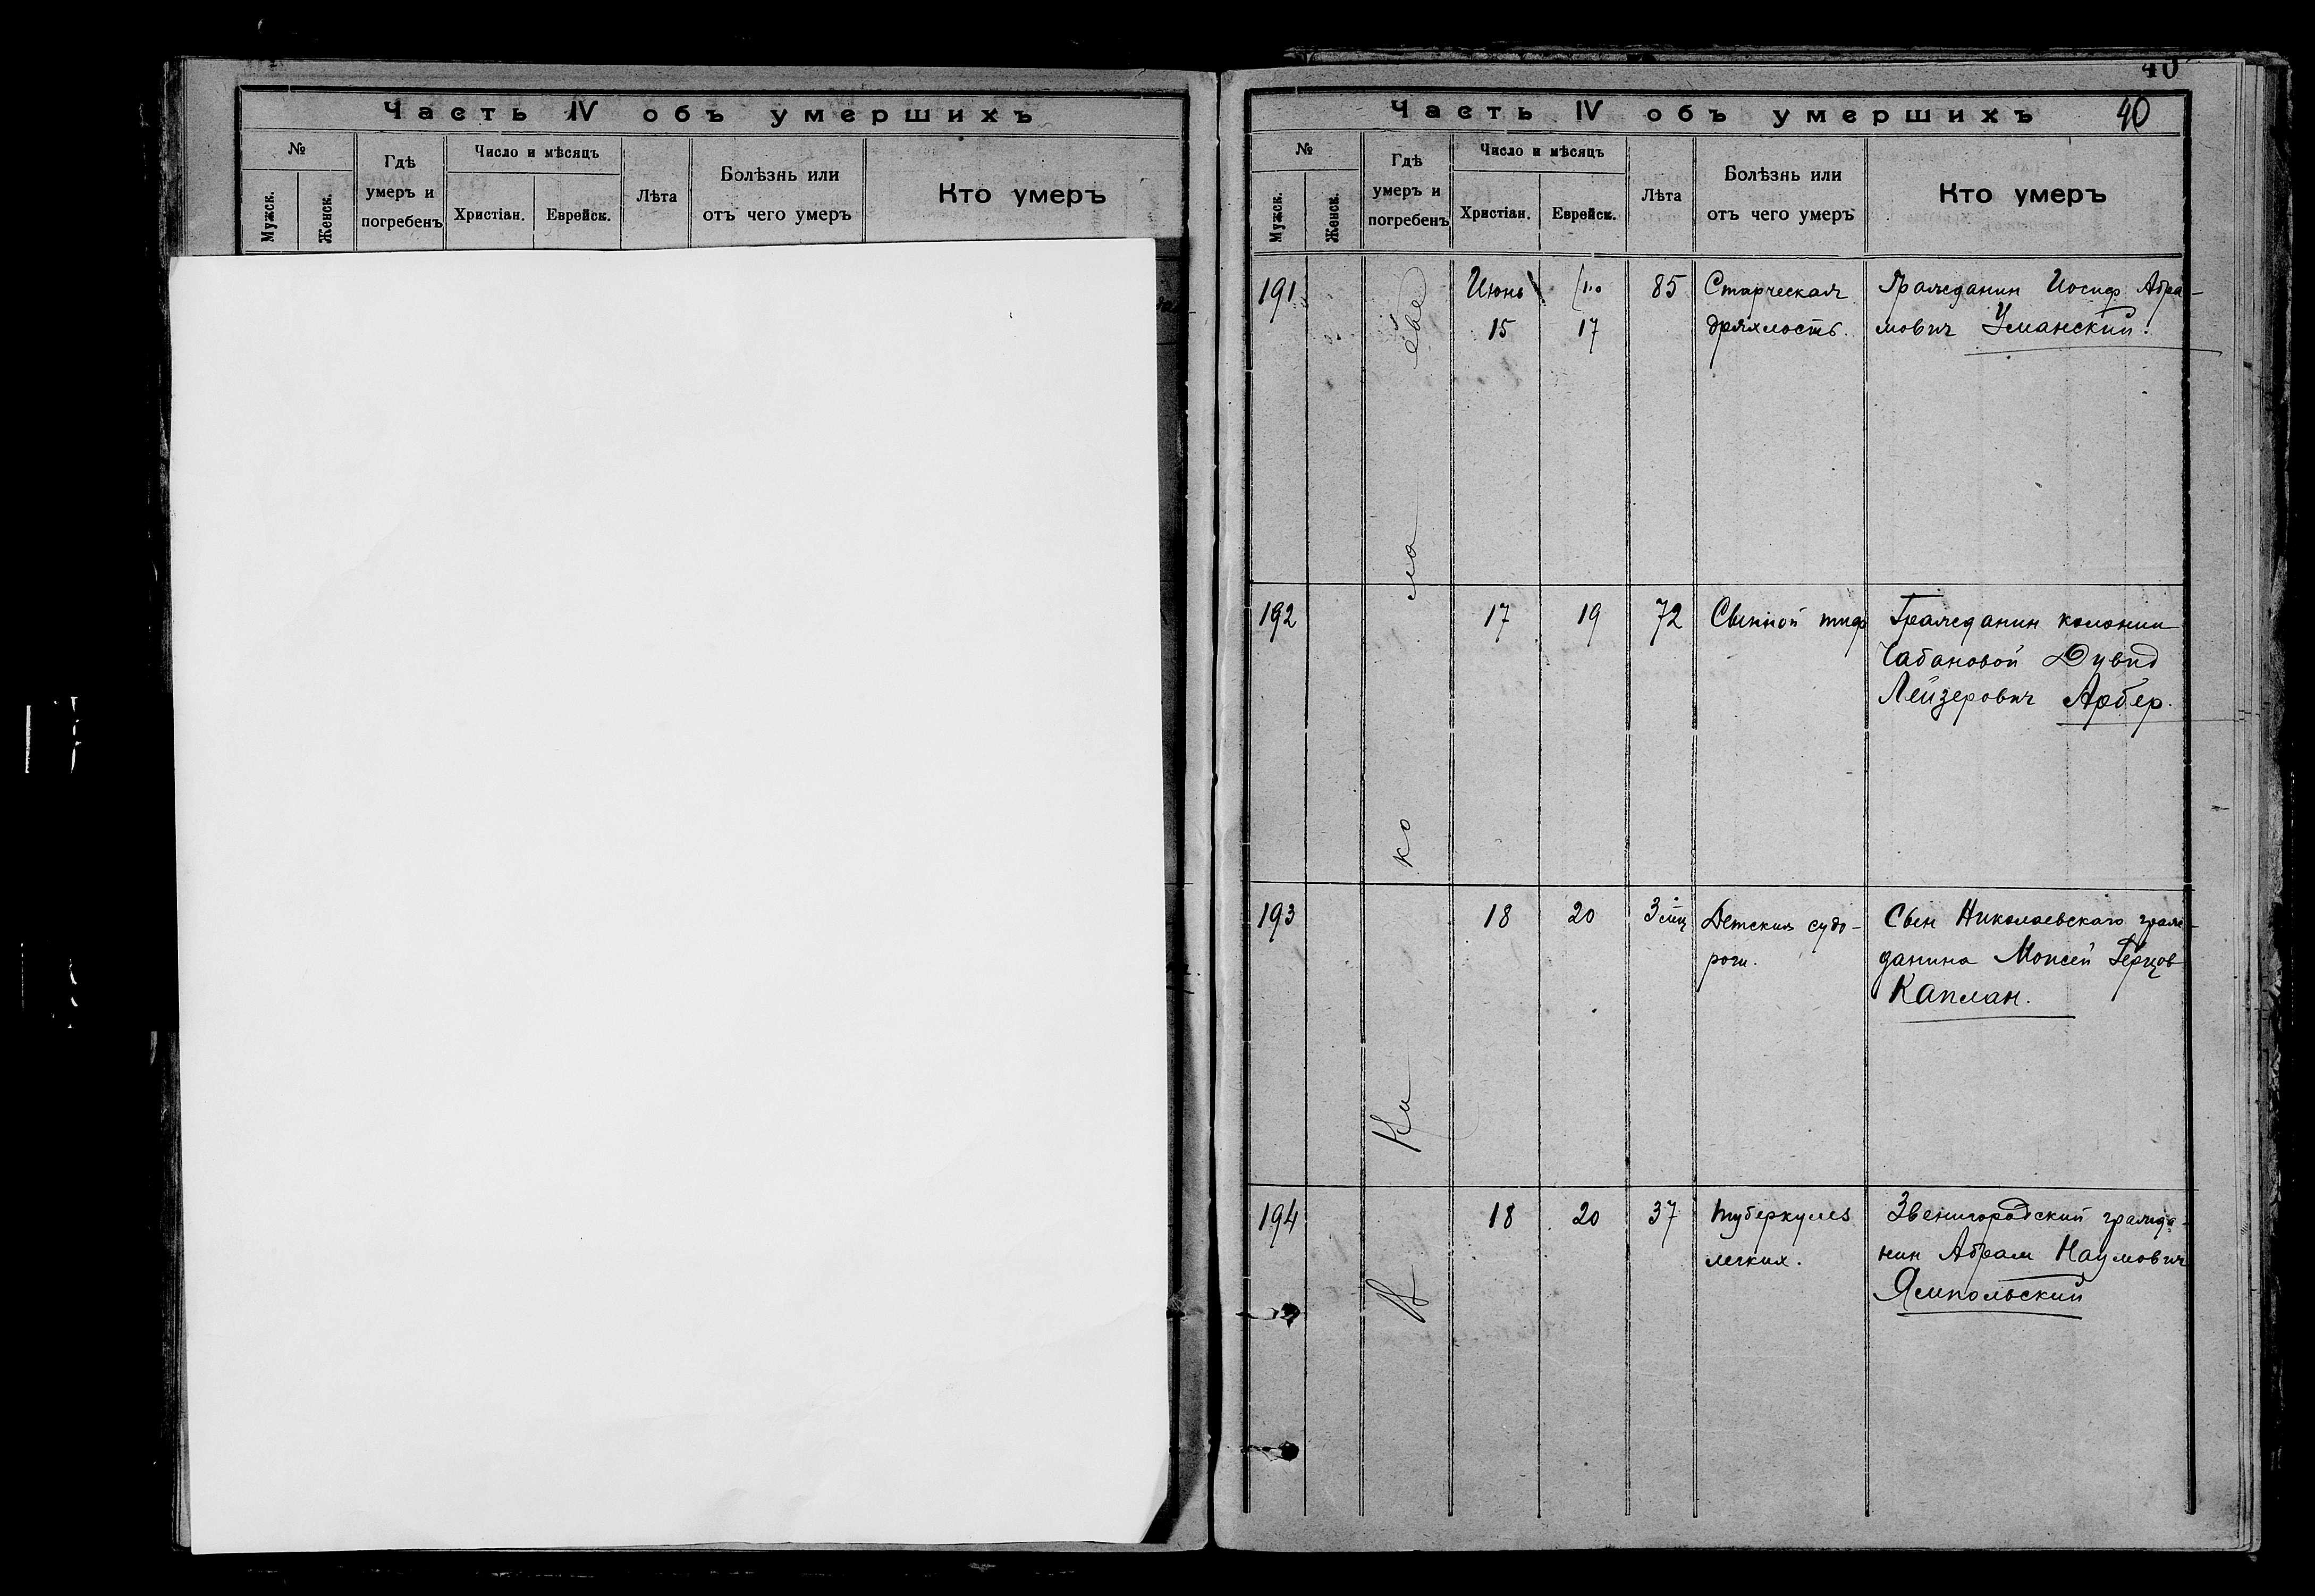 Часть IV объ умершихъ
№
Мужск.
Женск.
Гдѣ
умеръ и
погребенъ
Число и мѣсяцъ
Христіан.
Еврейск.
Лѣта
Болѣзнь или
отъ чего умеръ
Кто умеръ
40
Часть IV объ умершихъ
40
№
Мужск.
Женск.
Гдѣ
умеръ и
погребенъ
Число и мѣсяцъ
Христіан.
Еврейск.
Лѣта
Болѣзнь или
отъ чего умеръ
Кто умеръ
В Николаеве
191
Июнь
15
17
85
Старческая
дряхлость.
Гражданин Иосиф Абра-
мович Уманский.
192
17
19
72
Сыпной тиф
Гражданин колонии
Чабановой Дувид
Лейзерович Арбер.
193
18
20
3 мц
Детския судо-
роги.
Сын Николаевскаго граж-
данина Моисей Герцов
Каплан.
194
18
20
37
Туберкулез
легких.
Звенигородский гражда-
нин Абрам Наумович
Ямпольский